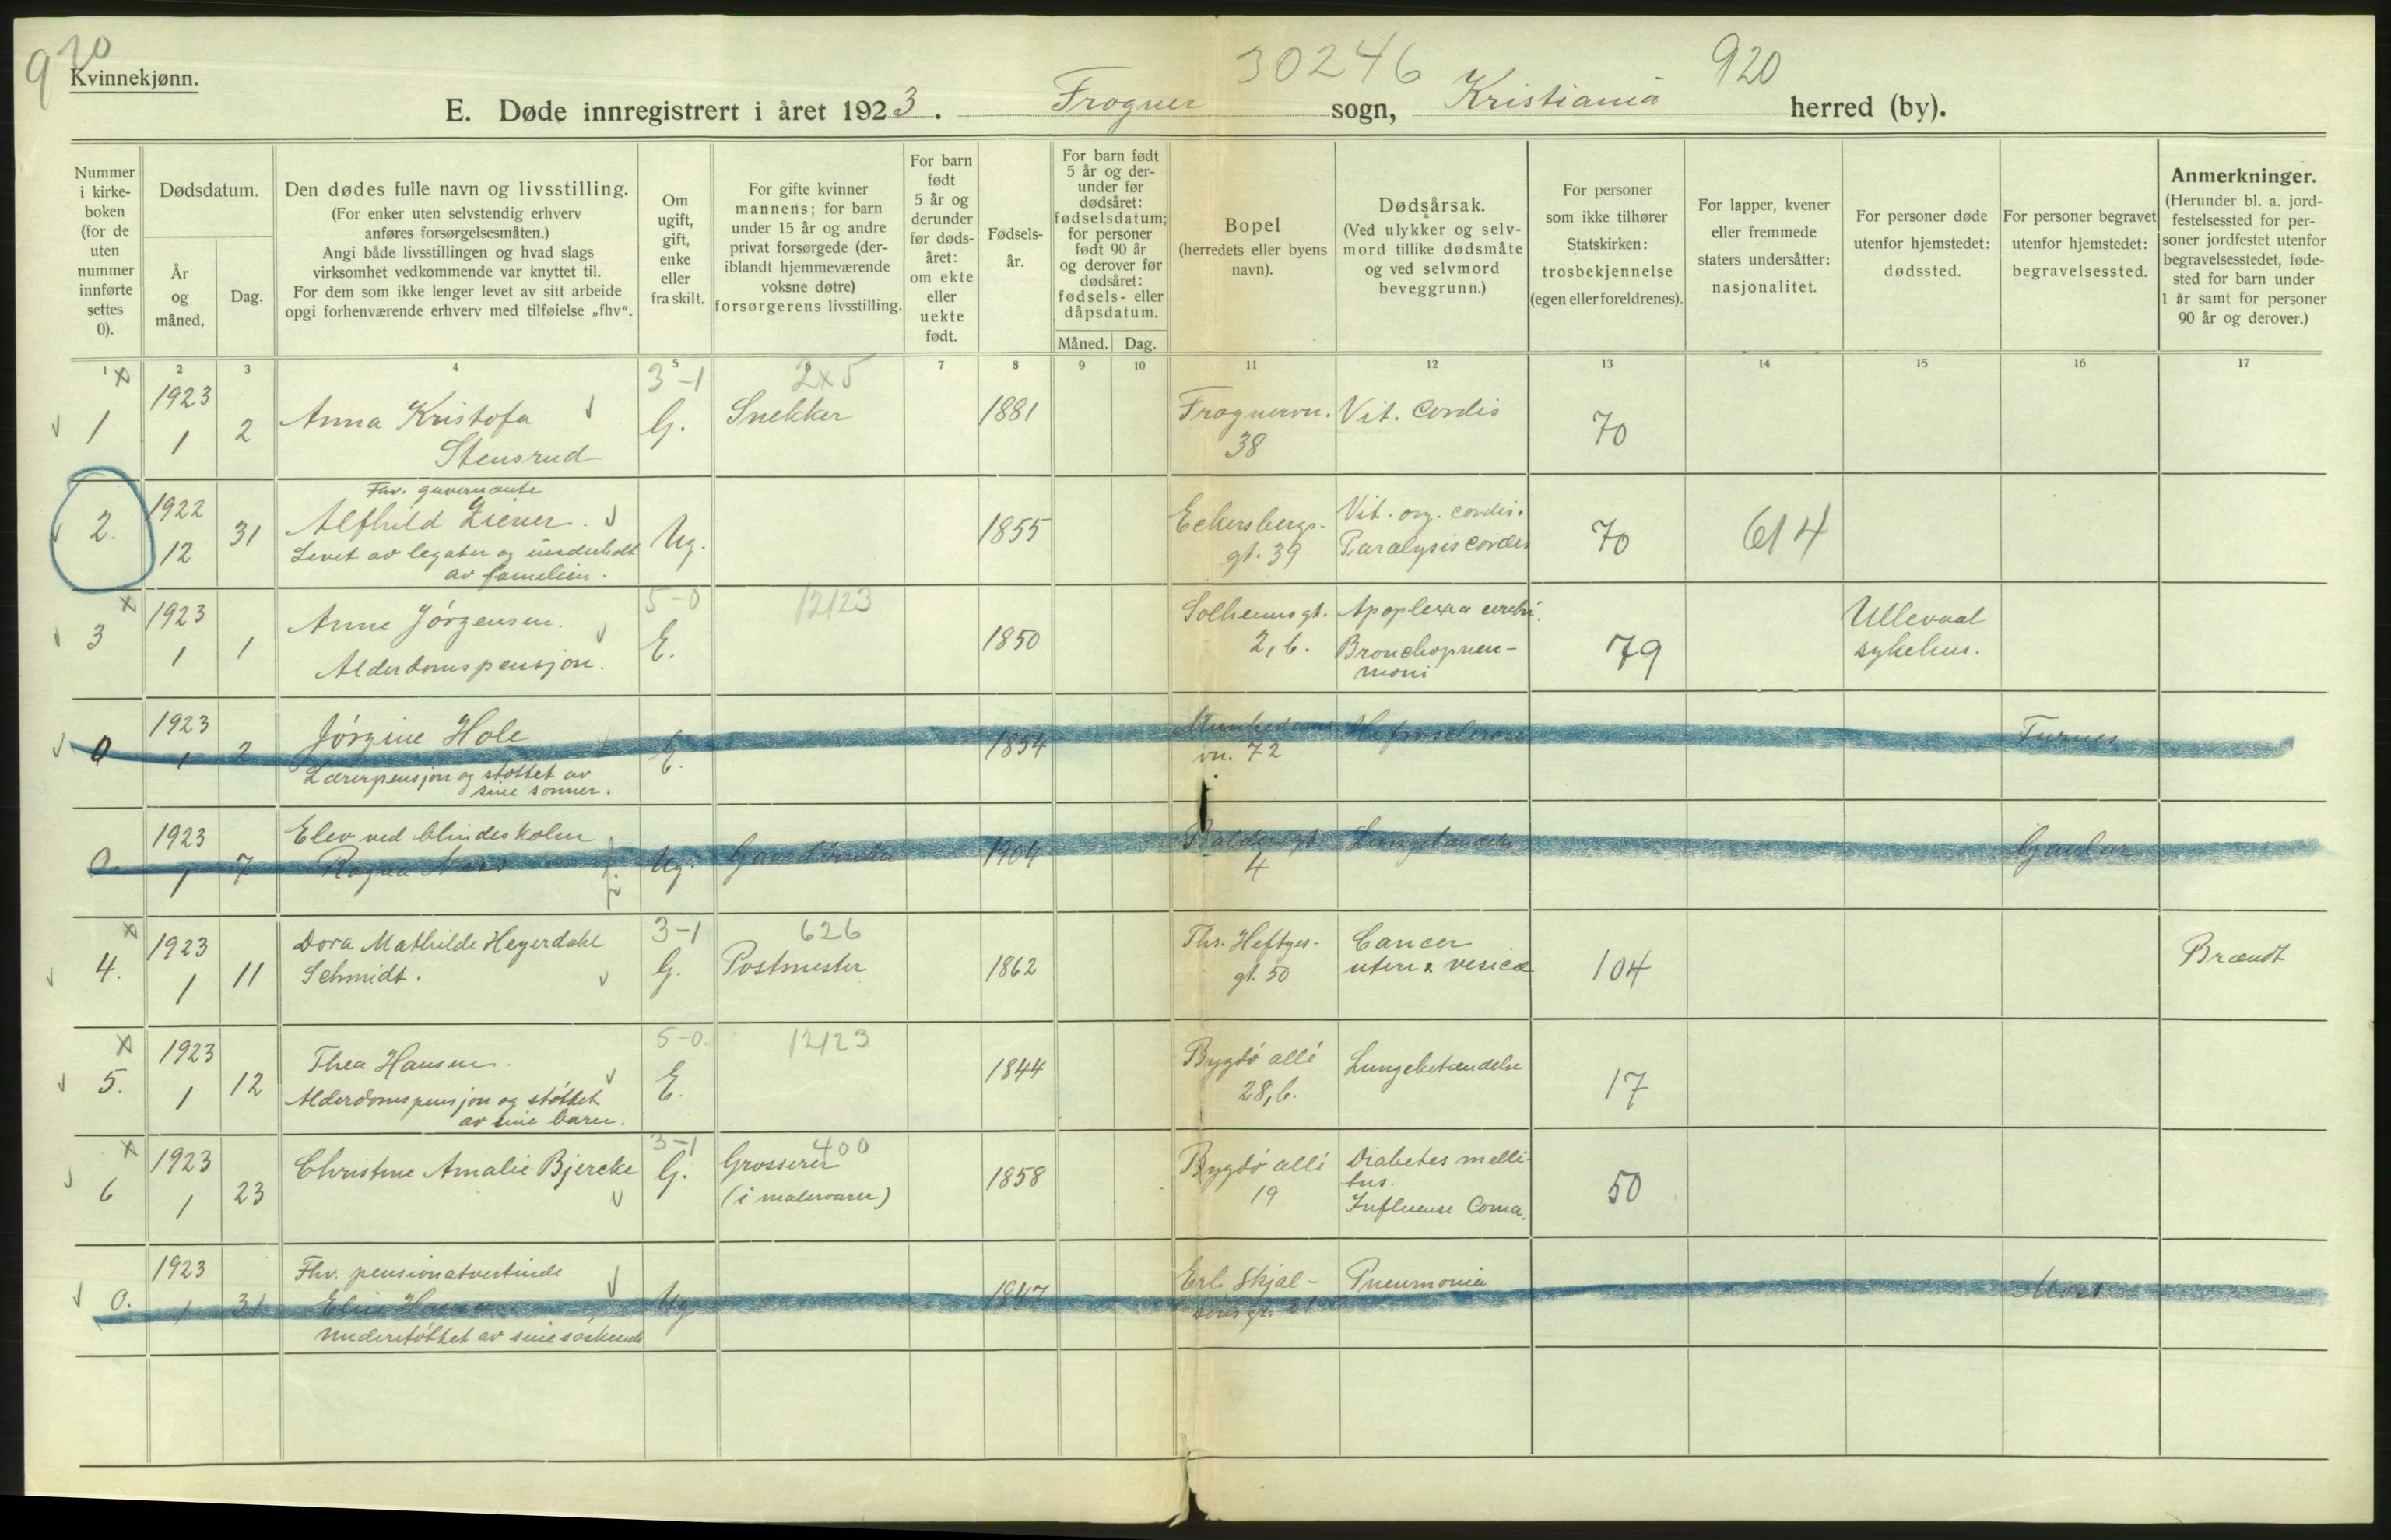 970
Kvinnekjønn.
30246
920
E. Døde innregistrert i året 1923. Frogner sogn, Kristiania herred (by).
Nummer
i kirke-
boken
(for de
uten
nummer
innførte
settes
0).
Dødsdatum.
År
og
måned.
Dag.
Den dødes fulle navn og livsstilling.
(For enker uten selvstendig erhverv
anføres forsørgelsesmåten.)
Angi både livsstillingen og hvad slags
virksomhet vedkommende var knyttet til.
For dem som ikke lenger levet av sitt arbeide
opgi forhenværende erhverv med tilføielse „fhv“.
Om
ugift,
gift,
enke
eller
fraskilt.
For gifte kvinner
mannens; for barn
under 15 år og andre
privat forsørgede (der-
iblandt hjemmeværende
voksne døtre)
forsørgerens livsstilling.
For barn
født
5 år og
derunder
før døds-
året:
om ekte
eller
uekte
født.
Fødsels-
år.
For barn født
5 år og der-
under før
dødsåret:
fødselsdatum;
for personer
født 90 år
og derover før
dødsåret:
fødsels- eller
dåpsdatum.
Måned. Dag.
Bopel
(herredets eller byens
navn).
Dødsårsak.
(Ved ulykker og selv-
mord tillike dødsmåte
og ved selvmord
beveggrunn.)
For personer
som ikke tilhører
Statskirken:
trosbekjennelse
(egen eller foreldrenes).
For lapper, kvener
eller fremmede
staters undersåtter:
nasjonalitet.
For personer døde
utenfor hjemstedet:
dødssted.
For personer begravet
utenfor hjemstedet:
begravelsessted.
Anmerkninger.
(Herunder bl. a. jord-
festelsessted for per-
soner jordfestet utenfor
begravelsesstedet, føde-
sted for barn under
1 år samt for personer
90 år og derover.)
1 2 3 4 5 6 7 8 9 10 11 12 13 14 15 16 17
x 3-1 2x5
1 1923 1 2 Anna Kristofa
Stensrud
G. Snekker 1881 Frognervn.
38
Vit. cordis 70
2. 1922 12 31 Fhv. guvernante
Alfhild Ziener.
Levet av legater og underholdt
av familien.
Ug. 1855 Eckersbergs-
gt. 39
Vit. org. cordis.
Paralysis cordis
70 614
x 5-0 12123
3 1923 1 1 Anne Jörgensen.
Alderdomspensjon.
E. 1850 Solheimsgt.
2, b.
Apoplexia cerebri.
Bronchopneu-
moni
79 Ullevaal
sykehus.
0 1923 1 2 Jörgine Hole
Lærerpensjon og stöttet av
sine sonner.
E. 1854 Munkedams
vn. 72
Furnes
0. 1923 1 7 Elev ved blindeskolen
Ragna
Ug. 1904 Balders gt.
4
Gaular
x 3-1 626
4. 1923 1 11 Dora Mathilde Heyerdahl
Schmidt.
G. Postmester 1862 Ths. Heftyes-
gt. 50
Cancer
uteri & vesicæ
104 Brændt
x 5-0. 12123
5. 1923 1 12 Thea Hansen.
Alderdomspensjon og stöttet
av sine barn.
E. 1844 Bygdö allé
28, b.
Lungebetændelse 17
x 3-1 400
6 1923 1 23 Christine Amalie Bjercke
G. Grosserer
(i malervarer)
1858 Bygdö allé
19
Diabetes melli-
tus.
Influense Coma.
50
0. 1923 1 31 Fhv. pensionatvertinde
Elise Hansen
Understöttet av sine söskende
Ug 1847 Erl. Skjal-
sons gt. 21
Pneumonia Moss